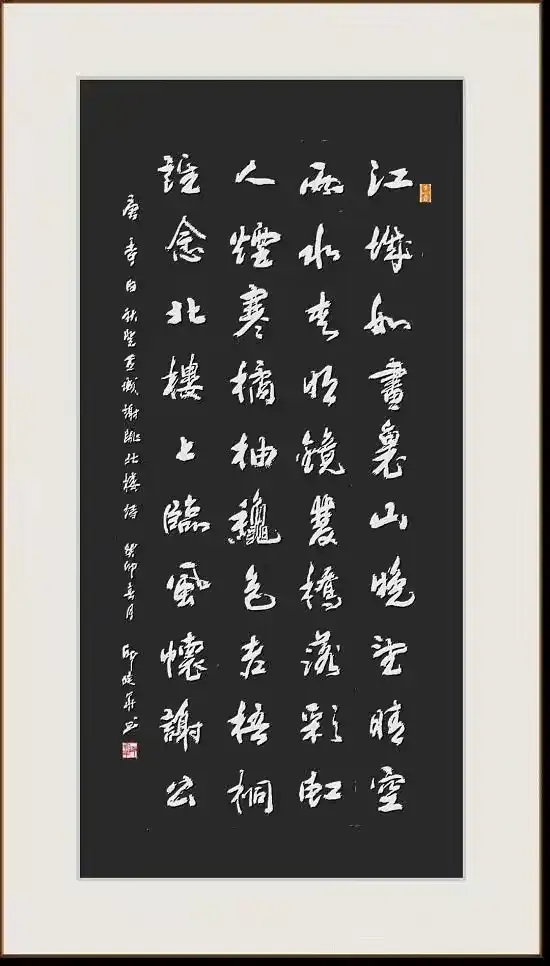 江城如畫裏山晚望晴空
兩水夾明鏡雙橋落彩虹
人煙寒橘柚龝色老梧桐
誰念北樓上臨風懷謝公
唐李白秋登宣城謝朓北樓詩 癸卯春月